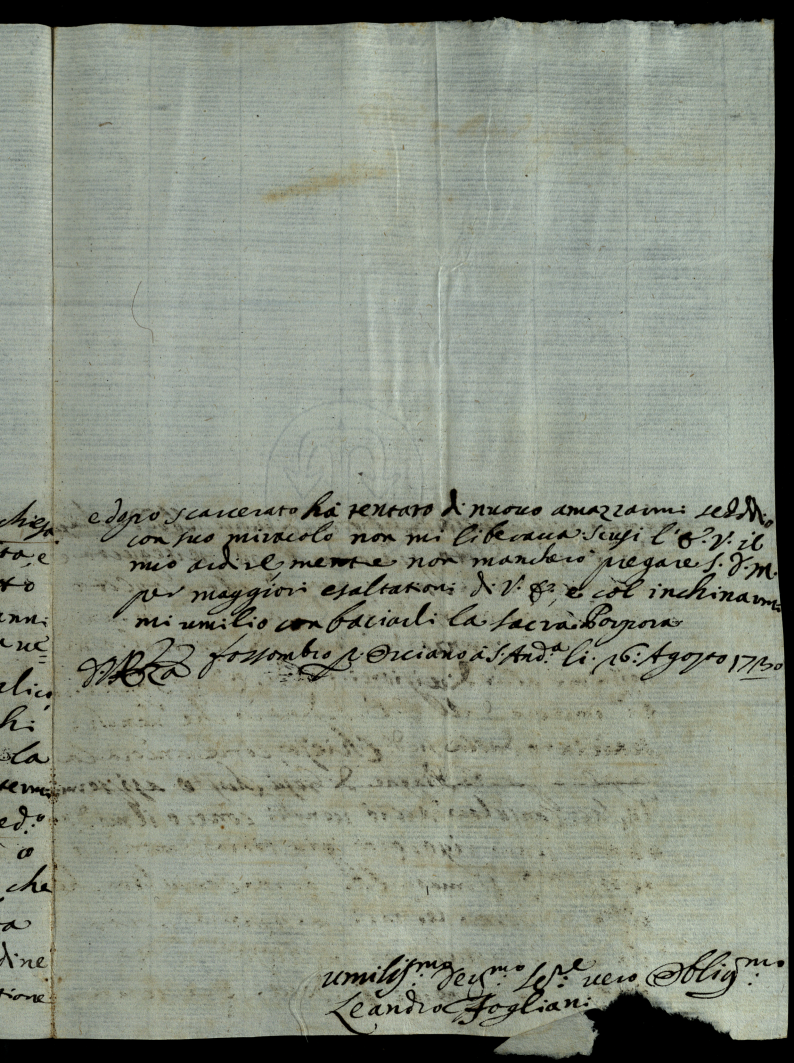 chiesa
ta, e
tto
anni
a ue=
alico,
hi
la
ed.o
che
ta
dine
tione
e dopo scarcerato hà tentato di nuouo amazzarmi se Iddio
con suo miracolo non mi liberaua. Scusi l'E. V. il
mio ardire mentre non mancherò pregare S. D. M.
per maggiori esaltationi di V. E., e col inchinarmi
mi umilio con baciarli la sacra Porpora
D. V. E.za fossombro p. Orciano à S. And.a li. 26. Agosto 1730
umiliss.mo deu.mo se.re uero Oblig.mo
Leandro Fogliani